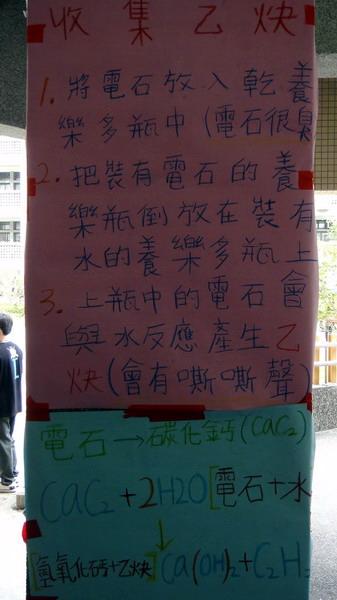 收集乙炔
1. 將電石放入乾養
樂多瓶中(電石很臭
2. 把裝有電石的養
樂瓶倒放在裝有
水的養樂多瓶上
3. 上瓶中的電石會
與水反應產生乙
炔(會有嘶嘶聲)
電石→碳化鈣(CaC2)
CaC2+2H2O[電石+水
↓
[氫氧化鈣+乙炔]Ca(OH)2+C2H